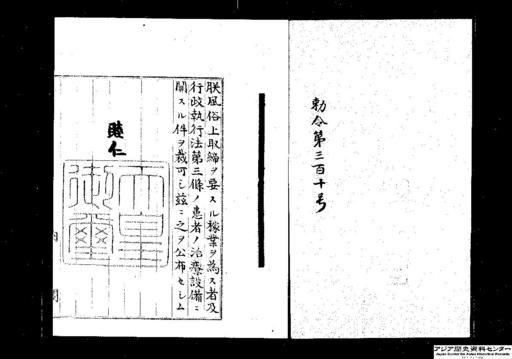 勅令第三百十号
朕風俗上取締ヲ要スル稼業ヲ為ス者及
行政執行法第三條ノ患者ノ治療設備ニ
關スル件ヲ裁可シ茲ニ之ヲ公布セシム
睦仁
天皇
御璽
内
閣
アジア歴史資料センター
Japan Center for Asian Historical Records